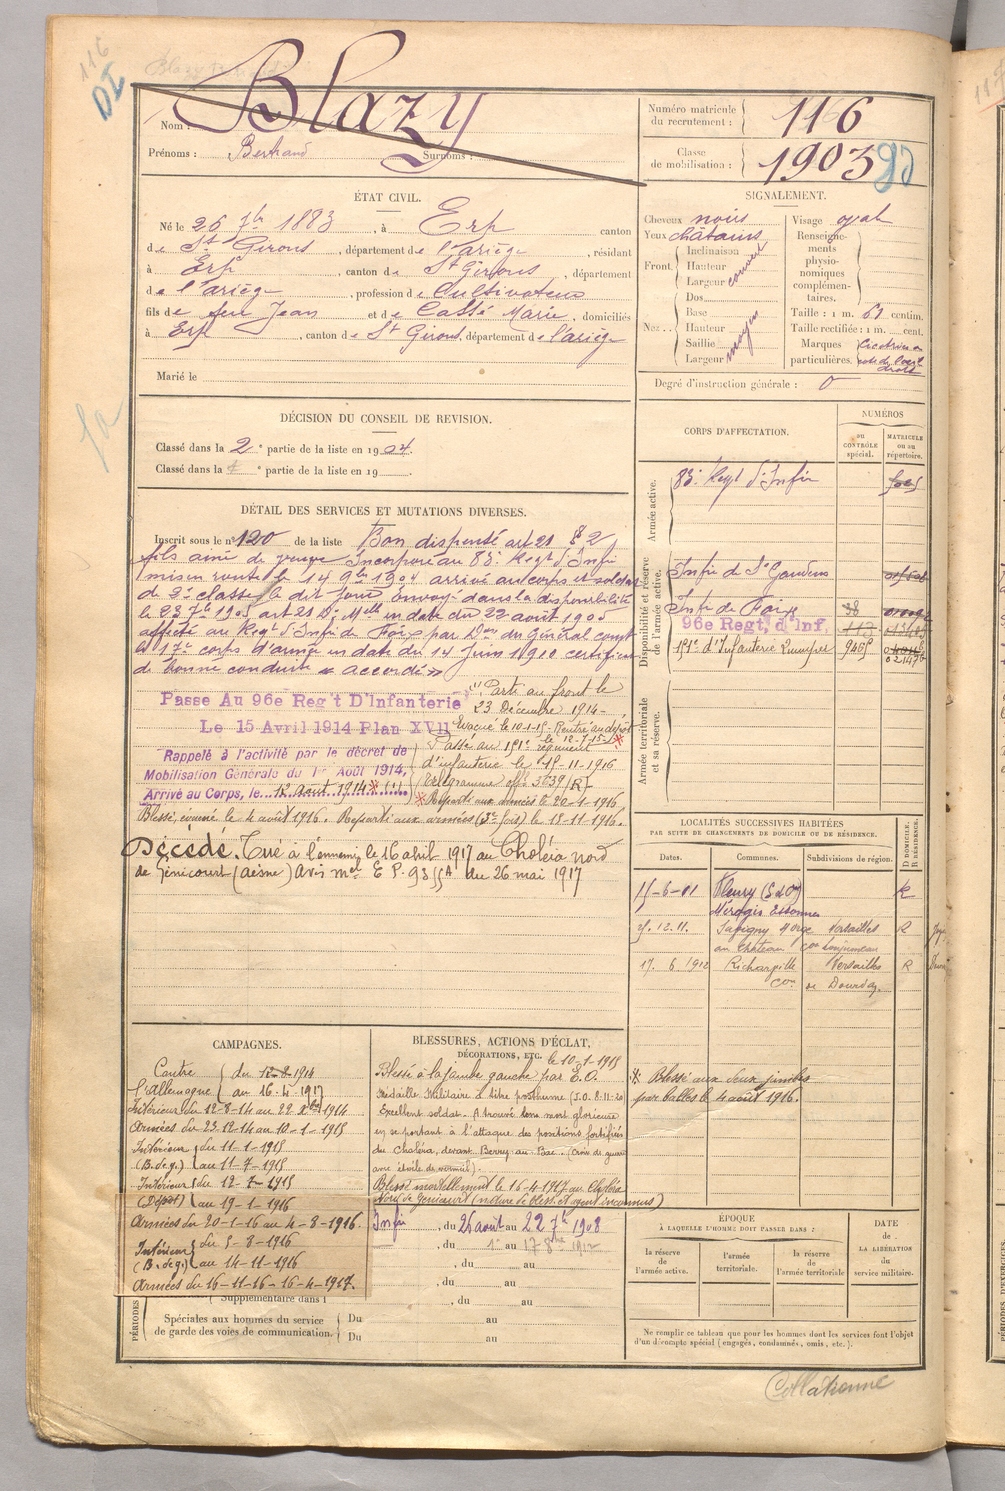 116
DI
Nom : Blazy
Prénoms : Bertrand Surnoms :
Numéro matricule du recrutement : 116
Classe de mobilisation : 1903
ÉTAT CIVIL.
Né le 26 7bre 1883, à Erp canton
de St Girons, département de l'ariège, résidant
à Erp, canton de St Girons, département
de l'ariège, profession de Cultivateur
fils de feu Jean et de Cassé Marie, domiciliés
à Erp, canton de St Girons, département de l'ariège
Marié le
SIGNALEMENT.
Cheveux noirs
Yeux châtains
Front. Inclinaison
Hauteur
Largeur couvert
Nez. Dos
Base
Hauteur
Saillie
Largeur moyen
Visage oval
Renseignements physionomiques complémentaires.
Taille : 1 m. 61 centim.
Taille rectifiée : 1 m. cent.
Marques particulières. Cicatrice
droit
Degré d'instruction générale : 0
DÉCISION DU CONSEIL DE REVISION.
Classé dans la 2e partie de la liste en 1904.
Classé dans la e partie de la liste en 19
DÉTAIL DES SERVICES ET MUTATIONS DIVERSES.
Inscrit sous le n° 120 de la liste Bon dispensé art 21 § 2
fils ainé de Incorporé au 83e Regt d'Infie
mis en route le 14 9bre 1904 arrivé au corps et soldat
de 2e classe le dit jour envoyé dans la disponibilité
le 23 7bre 1905 art 21 Dn Mlle en date du 22 août 1905
affecté au Regt d'Infie de Foix par Dn du Général comt
le 17e corps d'armée en date du 14 Juin 1910 certificat
de bonne conduite « accordé »
Passe Au 96e Reg't D'Infanterie
Le 15 Avril 1914 Plan XVII
Rappelé à l'activité par le décret de
Mobilisation Générale du 1er Août 1914,
Arrivé au Corps, le 12 août 1914 (1)
(1) Parti au front le
23 Décembre 1914 -
Evacué le 10-1-15 - Rentré au dépôt
le 12-7-15
Passé au 151e régiment
d'infanterie le 18-11-1916
Télégramme offl 3639 (R)
Reparti aux armées le 20-1-1916,
Blessé, évacué le 4 août 1916. Reparti aux armées (3e fois) le 18-11-1916.
Décédé. Tué à l'ennemi le 16 avril 1917 au Choléra nord
de Génicourt (aisne) avis mel du 26 mai 1917
CORPS D'AFFECTATION.
NUMÉROS
au CONTRÔLE spécial.
MATRICULE ou au répertoire.
Armée active.
83e Regt d'Infie
Disponibilité et réserve de l'armée active.
Infie de St Gaudens
Infie de Foix
96e Regt, d'Inf.
151e d'Infanterie Quimper 9465
Armée territoriale et sa réserve.
LOCALITÉS SUCCESSIVES HABITÉES
PAR SUITE DE CHANGEMENTS DE DOMICILE OU DE RÉSIDENCE.
Dates. Communes. Subdivisions de région. D DOMICILE. R RÉSIDENCE.
15-6-11 Fleury (S et O) R
Mérogis Essonnes
5.12.11. Savigny s/ Orge Versailles R
au Château con Longjumeau
17. 6 1912 Richarville Versailles R
con de Dourdan
* Blessé aux deux jambes
par balles le 4 août 1916.
CAMPAGNES.
Contre l'Allemagne du 12-8-1914
au 16-4-1917
Intérieur du 12-8-14 au 22 Xbre 1914
Armées du 23-12-14 au 10-1-1915
Intérieur (B. de g.) du 11-1-1915
au 11-7-1915
Intérieur (Dépôt) du 12-7-1915
au 19-1-1916
Armées du 20-1-16 au 4-8-1916.
Intérieur (B. de g.) du 5-8-1916
au 14-11-1916
Armées du 16-11-16 - 16-4-1917.
BLESSURES, ACTIONS D'ÉCLAT,
DÉCORATIONS, ETC.
le 10-1-1915
Blessé à la jambe gauche par E.O.
Médaille Militaire à titre posthume (J.O. 8-11-20
Excellent soldat. A trouvé une mort glorieuse
en se portant à l'attaque des positions fortifiées
du Choléra, devant Berry au Bac. (Croix de guerre
avec étoile de vermeil).
Blessé mortellement le 16-4-1917 au Choléra
Nord de Génicourt (nature de bless. et agent inconnus)
Infie, du 26 août au 22 7bre 1908
, du 1er au 17 1912
, du au
, du au
, du au
PÉRIODES
Supplémentaire dans l
Spéciales aux hommes du service
de garde des voies de communication.
Du au
Du au
ÉPOQUE
À LAQUELLE L'HOMME DOIT PASSER DANS :
la réserve de l'armée active.
l'armée territoriale.
la réserve de l'armée territoriale
DATE DE LA LIBÉRATION du service militaire.
Ne remplir ce tableau que pour les hommes dont les services font l'objet
d'un décompte spécial (engagés, condamnés, omis, etc.).
Collationné